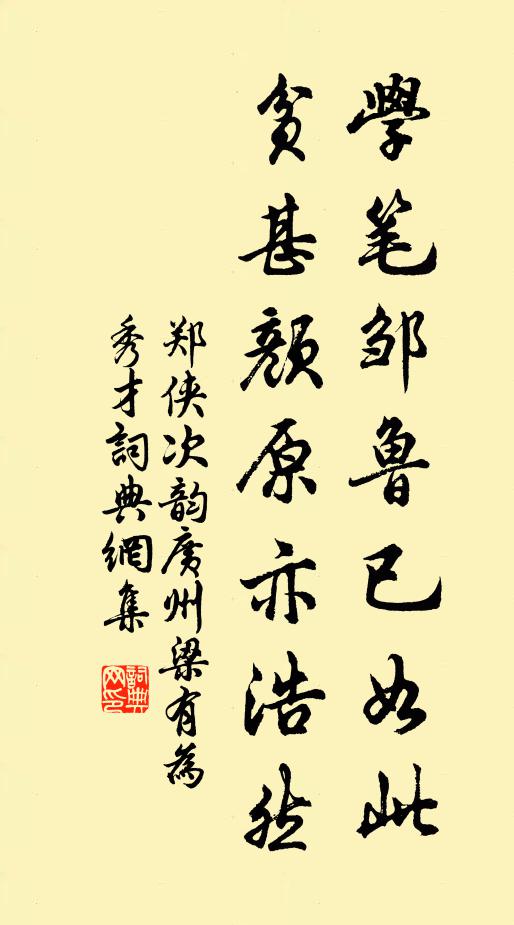 學笔邹鲁已如此
贫甚颜原亦浩然
郑侠次韵广州梁有為
秀才詞典網集
詞典网印